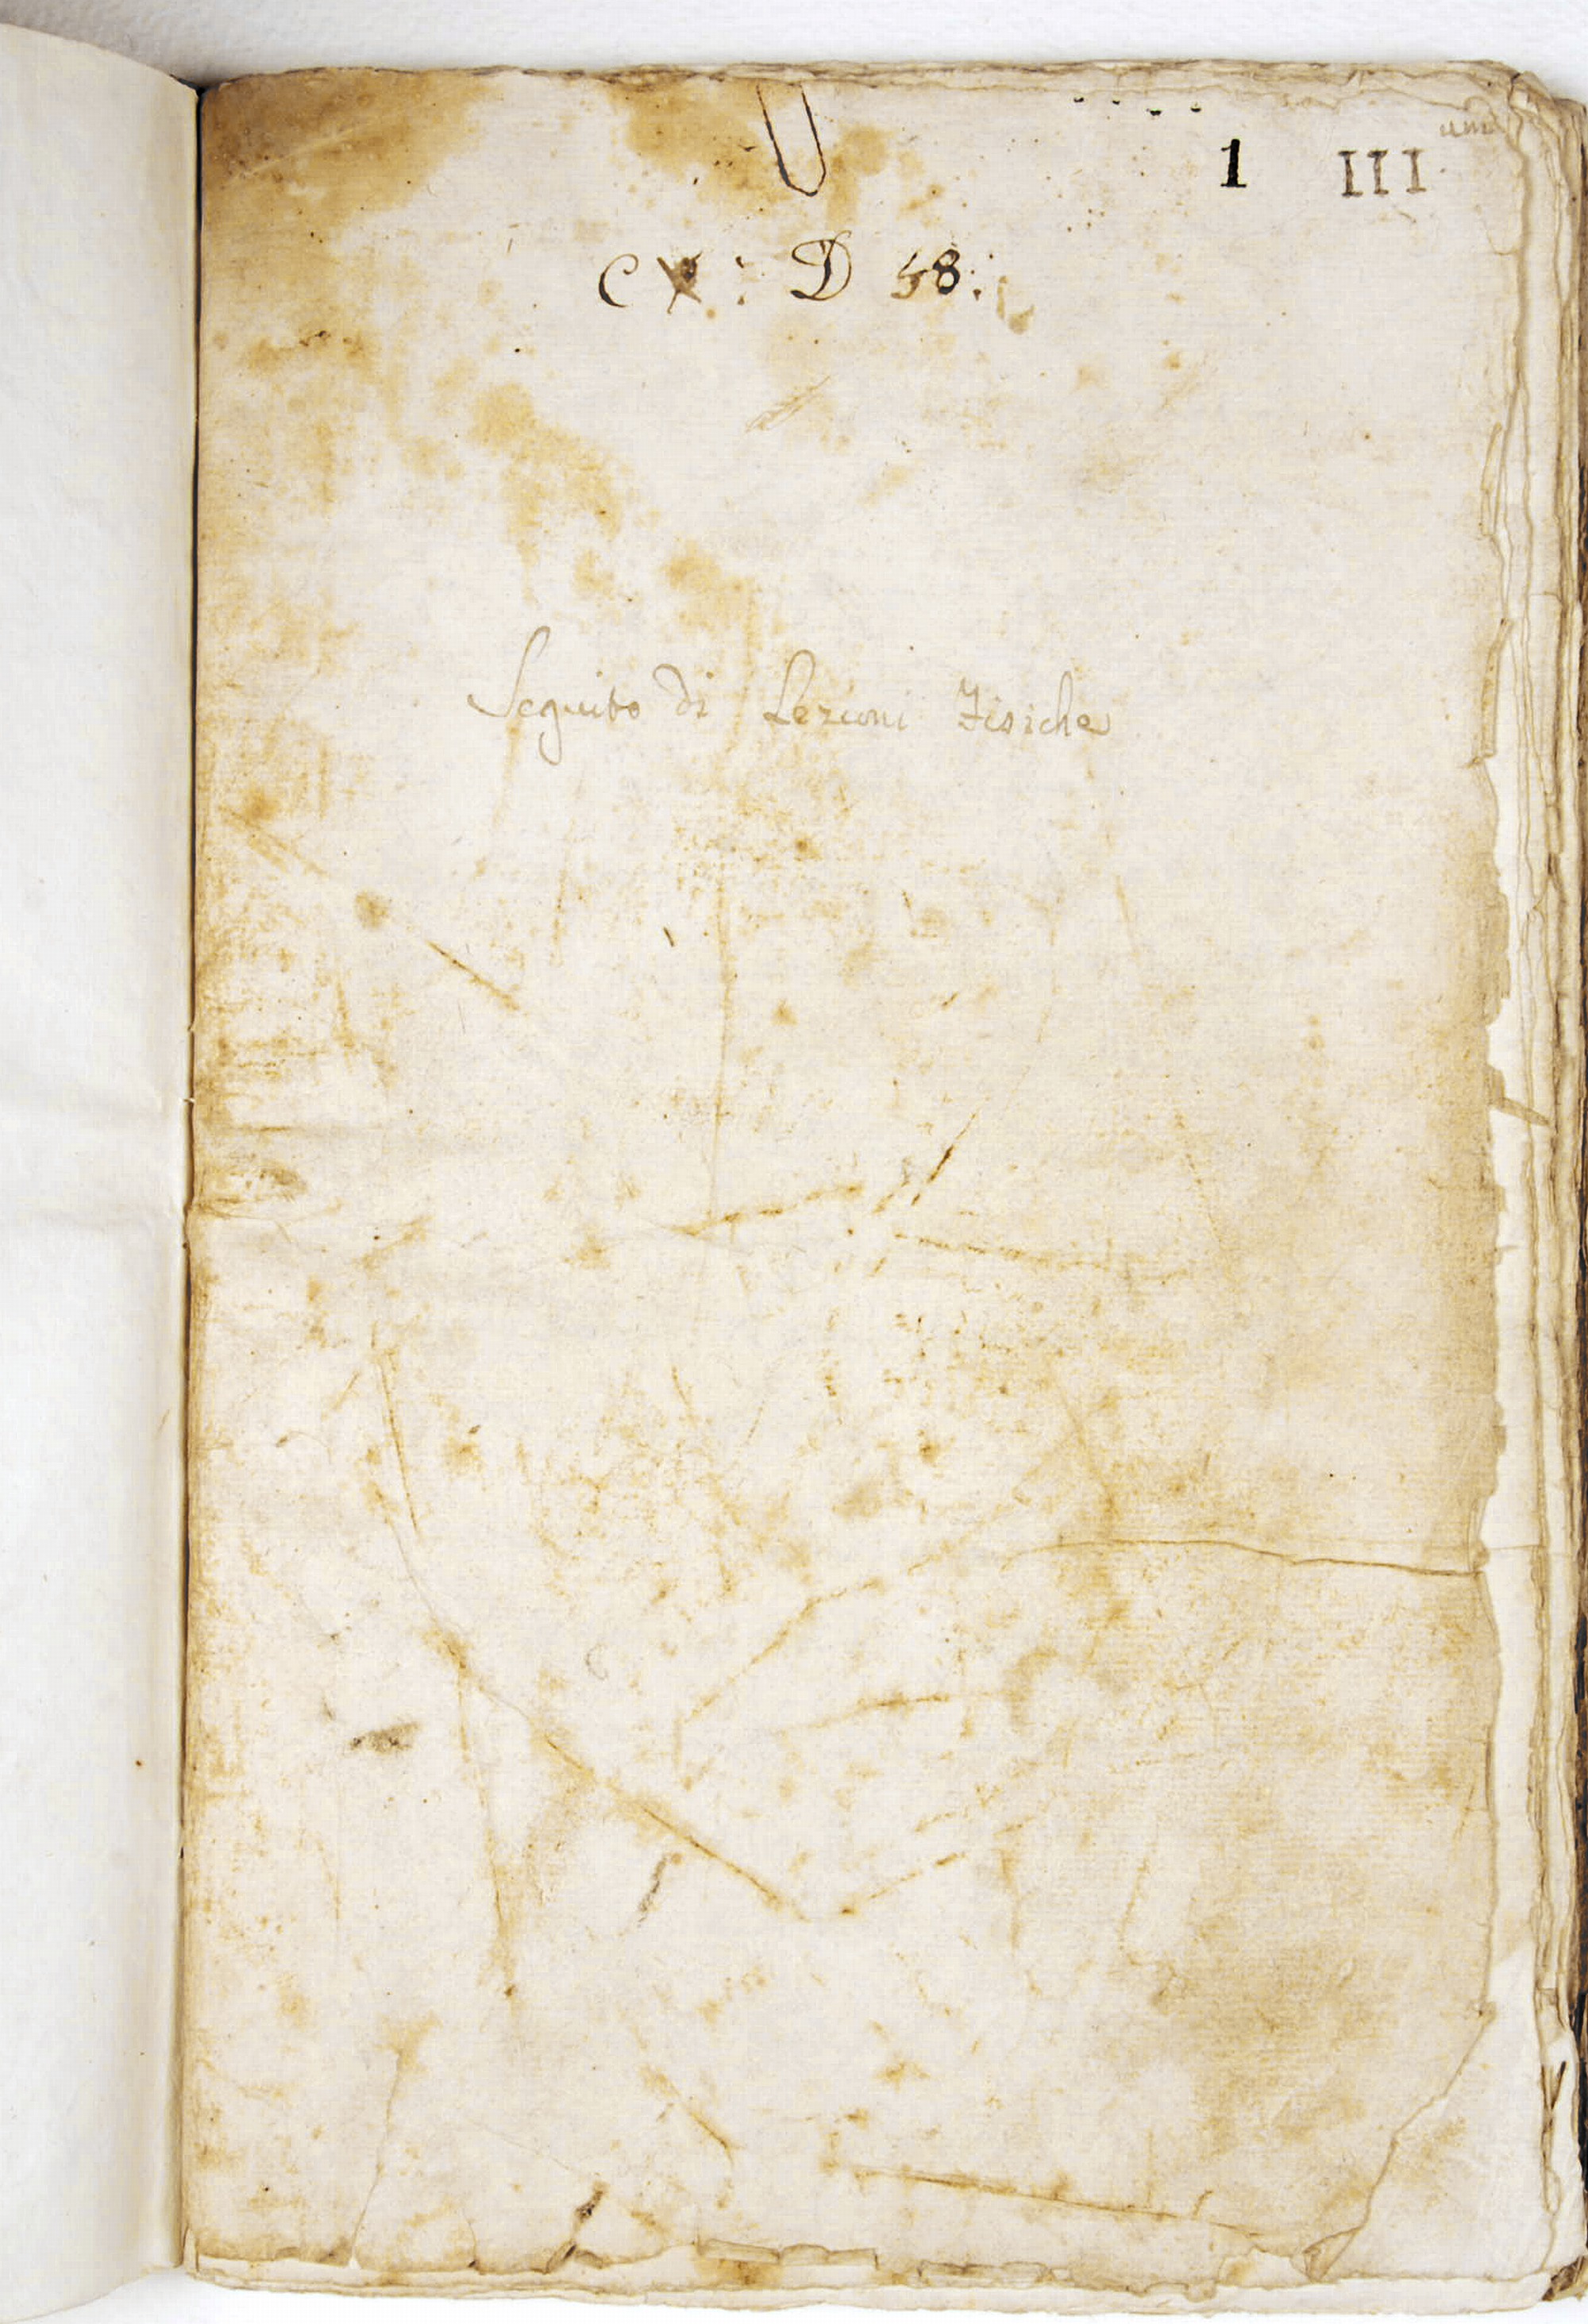 1 III
CX: D 58:
Seguito di Lezioni Fisiche